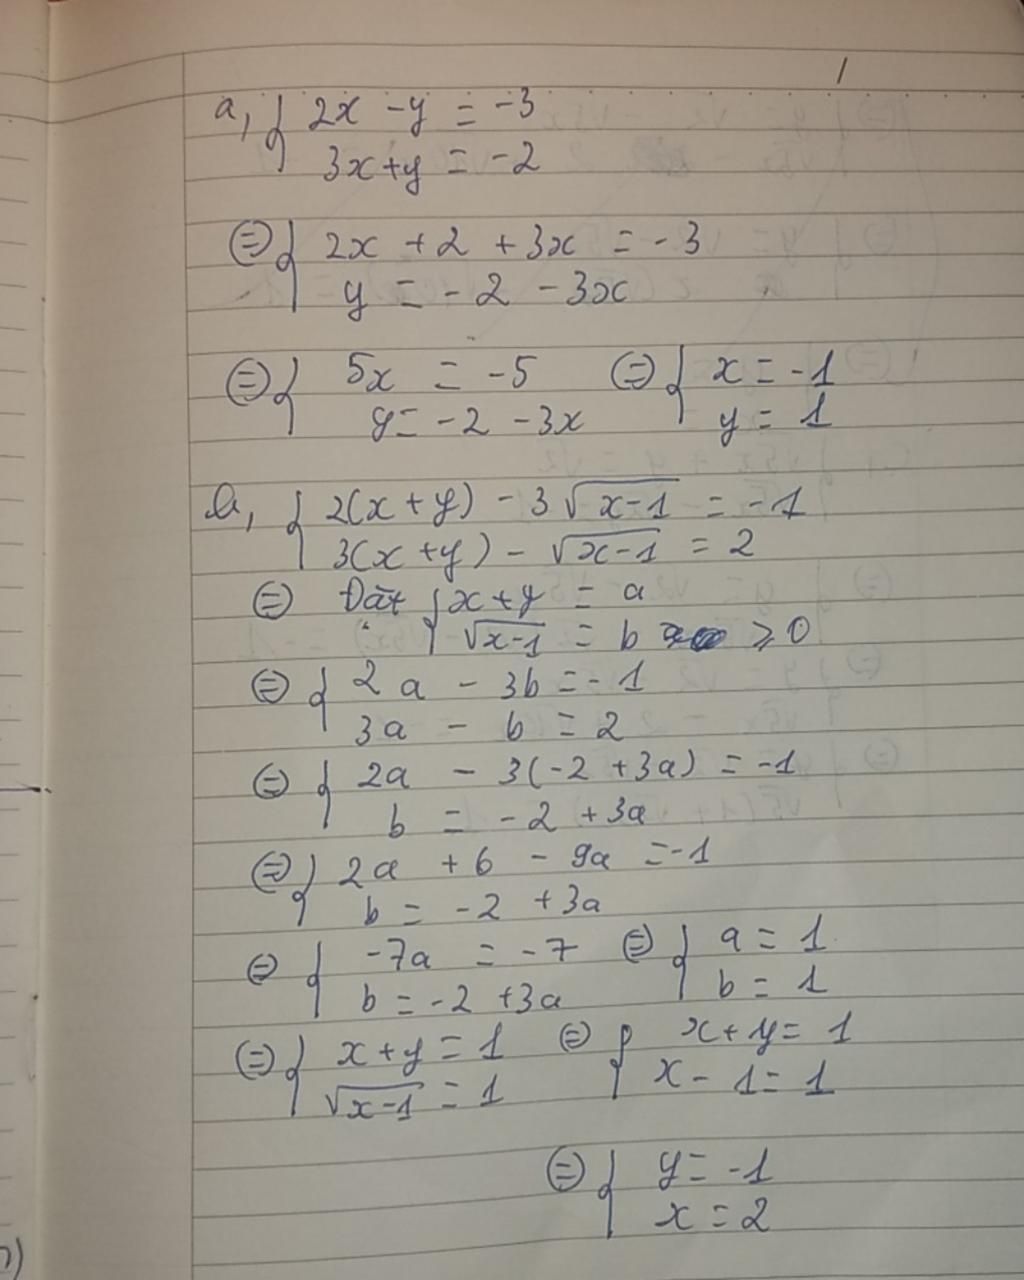 a, { 2x - y = -3
3x + y = -2
⇔ { 2x + 2 + 3x = -3
y = -2 - 3x
⇔ { 5x = -5 ⇔ { x = -1
y = -2 - 3x y = 1
b, { 2(x + y) - 3√(x-1) = -1
3(x + y) - √(x-1) = 2
⇔ Đặt { x + y = a
√(x-1) = b ≥ 0
⇔ { 2a - 3b = -1
3a - b = 2
⇔ { 2a - 3(-2 + 3a) = -1
b = -2 + 3a
⇔ { 2a + 6 - 9a = -1
b = -2 + 3a
⇔ { -7a = -7 ⇔ { a = 1
b = -2 + 3a b = 1
⇔ { x + y = 1 ⇔ { x + y = 1
√(x-1) = 1 x - 1 = 1
⇔ { y = -1
x = 2